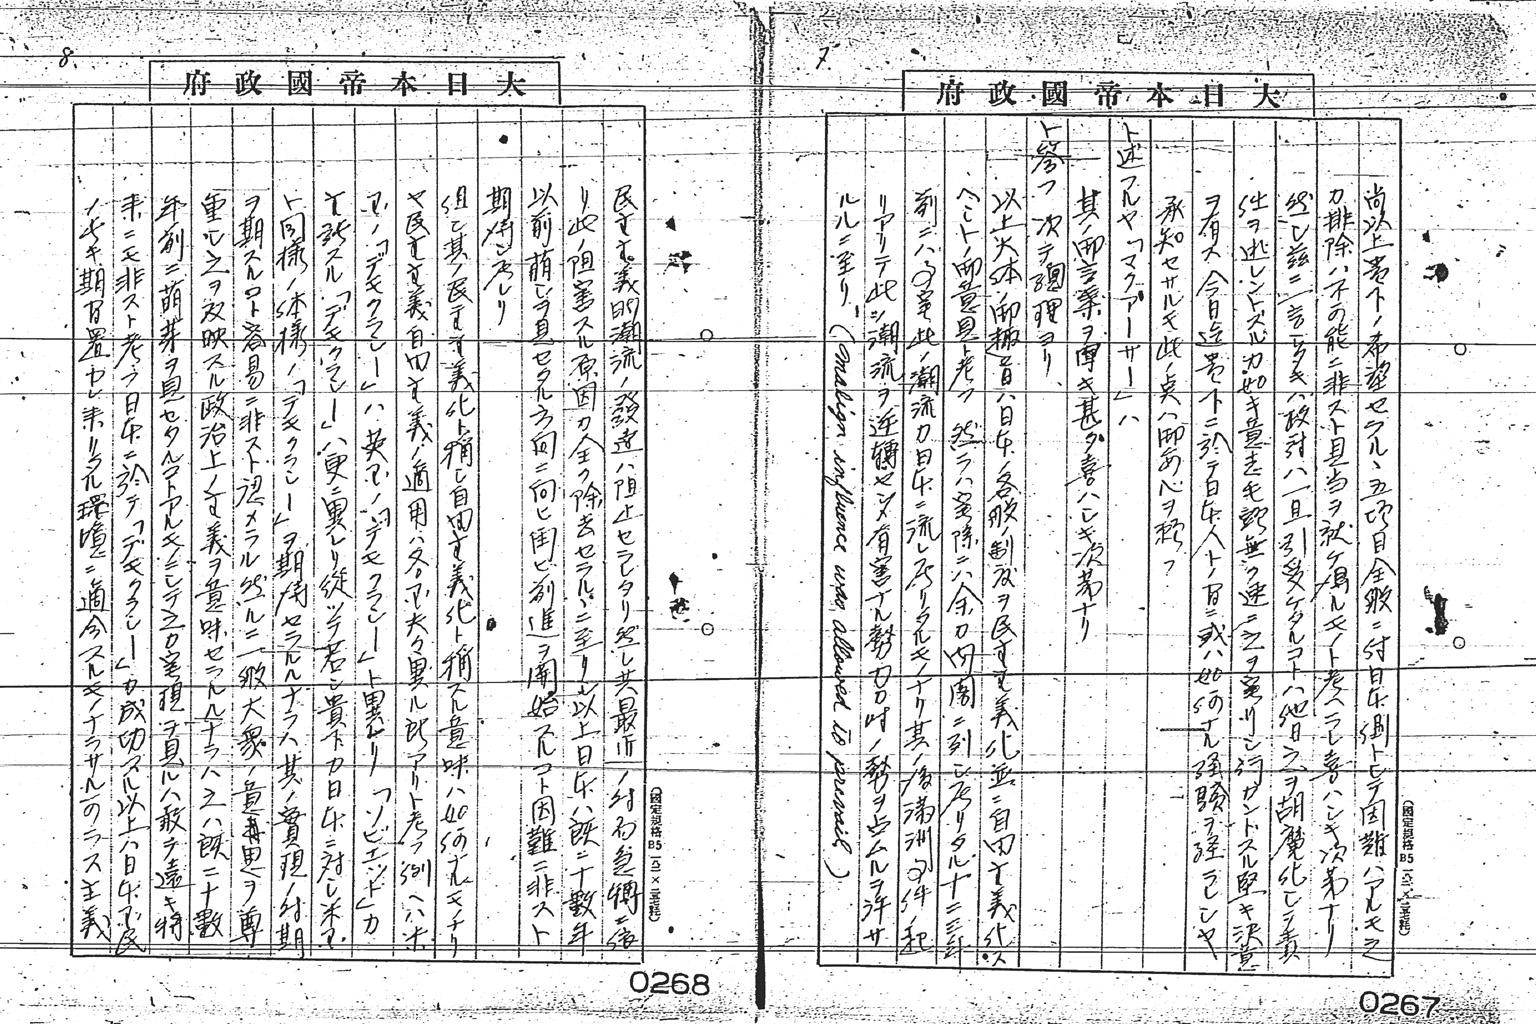 7.
大日本帝國政府
尚以上貴下ノ希望セラルヽ五項目全般ニ付日本側トシテ困難ハアルモ之
カ排除ハ不可能ニ非スト且当ヲ就ケ得ルモノト考ヘラレ喜ハシキ次第ナリ
然シ茲ニ一言スヘキハ政府ハ一旦引受ケタルコトハ他日之ヲ胡魔化シテ責
任ヲ逃レントスルカ如キ意志毛頭無ク速ニ之ヲ実行シ行カントスル堅キ決意
ヲ有ス今日迄貴下ニ於テ日本人トノ間ニ或ハ如何ナル経験ヲ経ラレシヤ
承知セサルモ此ノ点ハ御安心ヲ願フ
ト述フルヤ「マクアーサー」ハ
其ノ御言葉ヲ聞キ甚タ喜ハシキ次第ナリ
ト答フ次テ總理ヨリ
以上大体ノ御趣旨ハ日本ノ各般ノ制度ヲ民主主義化並ニ自由主義化ス
ヘシトノ御意見ト考フ然ラハ実際ニハ余カ内閣ニ列シ居リタル十二三年
前ニハ事実此ノ潮流カ日本ニ流レ居リタルモノナリ其ノ後満洲事件起
リアリテ此ノ潮流ヲ逆轉センメ有害ナル勢力カ一時ノ勢ヲ占ムルヲ許サ
ルルニ至リ (malign influence was allowed to prevail)
(國定規格B5 一八二×二五七粍)
0267
8.
大日本帝國政府
民主主義的潮流ノ發達ハ阻止セラレタリ然シ共最近ノ対局急轉ニ依
リ此ノ阻害スル原因カ全ク除去セラルヽニ至リシ以上日本ハ既ニ十數年
以前萌シヲ見セタル方向ニ向ヒ再ヒ前進ヲ開始スルコト困難ニ非スト
期待シ居レリ
但シ其ノ民主主義化ト稱シ自由主義化ト稱スル意味ハ如何ナルモノナリ
ヤ民主主義自由主義ノ適用ハ各国夫々異ル所アリト考フ例ヘハ米
国ノ「デモクラシー」ハ英国ノ「デモクラシー」ト異レリ「ソビエット」カ
主張スル「デモクラシー」ハ更ニ異レリ從ツテ若シ貴下カ日本ニ対シ米国
ト同様ノ体様ノ「デモクラシー」ヲ期待セラルルナラハ其ノ實現ノ時期
ヲ期スルコト容易ニ非スト認メラル然ルニ一般大衆ノ意思ヲ尊
重シ之ヲ反映スル政治上ノ主義ヲ意味セラルルナラハ之ハ既ニ十數
年前ニ萌芽ヲ見セタルコトアルモノニシテ之カ実現ヲ見ルハ敢テ遠キ将
来ニモ非スト考フ日本ニ於テ「デモクラシー」カ成功スル以上ハ日本国民
ノ長キ期間置カレ来リタル環境ニ適合スルモノナラサル可ラス主義
(國定規格B5 一八二×二五七粍)
0268